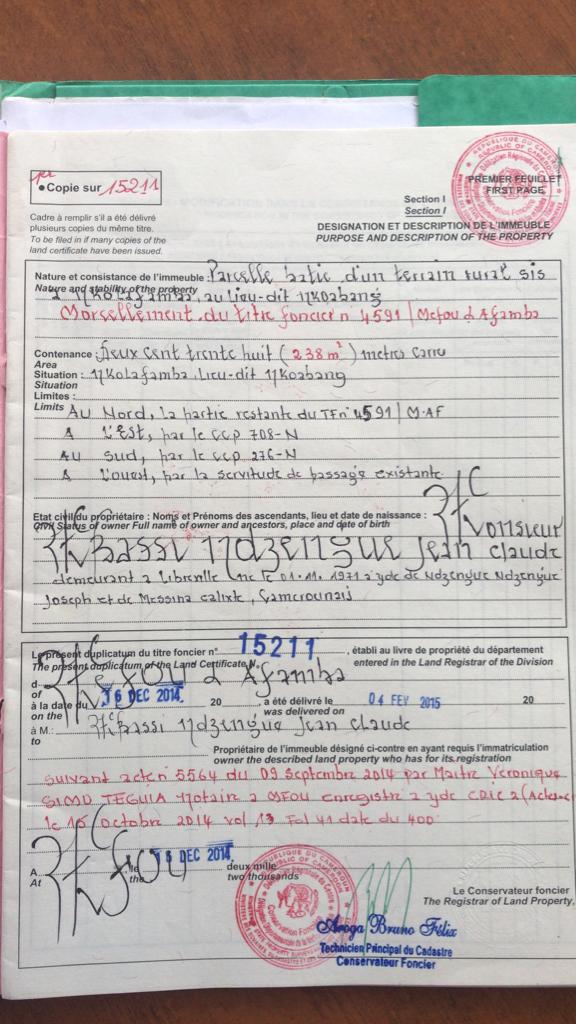 1er
• Copie sur 15211
Cadre à remplir s'il a été délivré
plusieurs copies du même titre.
To be filed in if many copies of the
land certificate have been issued.
REPUBLIQUE DU CAMEROUN
REPUBLIC OF CAMEROON
PREMIER FEUILLET
FIRST PAGE
Section I
Section I
DESIGNATION ET DESCRIPTION DE L'IMMEUBLE
PURPOSE AND DESCRIPTION OF THE PROPERTY
Nature et consistance de l'immeuble : Parcelle batie d'un terrain rural sis
Nature and stability of the property
à Nkolafamba, au lieu-dit Nkoabang
Morcellement du titre foncier n° 4591 / Mefou & Afamba
Contenance : Deux cent trente huit (238 m²) metres carré
Area
Situation : Nkolafamba, Lieu-dit Nkoabang
Situation
Limites :
Limits
Au Nord, la partie restante du TF n° 4591 / M.AF
A L'Est, par le CCP 708-N
Au Sud, par le CCP 276-N
A L'ouest, par la servitude de passage existante
Etat civil du propriétaire : Noms et Prénoms des ascendants, lieu et date de naissance :
Civil Status of owner Full name of owner and ancestors, place and date of birth
Monsieur
Mbassi Ndzengue Jean Claude
demeurant à Libreville né le 01.11.1971 à yde de Ndzengue Ndzengue
Joseph et de Messina calixte, Camerounais
Le présent duplicatum du titre foncier n° 15211, établi au livre de propriété du département
The present duplicatum of the Land Certificate N. entered in the Land Registrar of the Division
d Mefou & Afamba
of
à la date du 16 DEC 2014 20 , a été délivré le 04 FEV 2015 20
on the was delivered on
à M.: Mbassi Ndzengue Jean Claude
to
Propriétaire de l'immeuble désigné ci-contre en ayant requis l'immatriculation
owner the described land property who has for its registration
suivant acte n° 5564 du 09 Septembre 2014 par Maitre Veronique
SIMO TEGUIA Notaire à MFOU enregistré à yde
le 15 octobre 2014 vol 13 Fol 41
A Mfou le 16 DEC 2014 deux mille
At the two thousands
REPUBLIQUE DU CAMEROUN
REPUBLIC OF CAMEROON
Conservation Foncière
Le Conservateur foncier
The Registrar of Land Property,
Aroga Bruno Félix
Technicien Principal du Cadastre
Conservateur Foncier